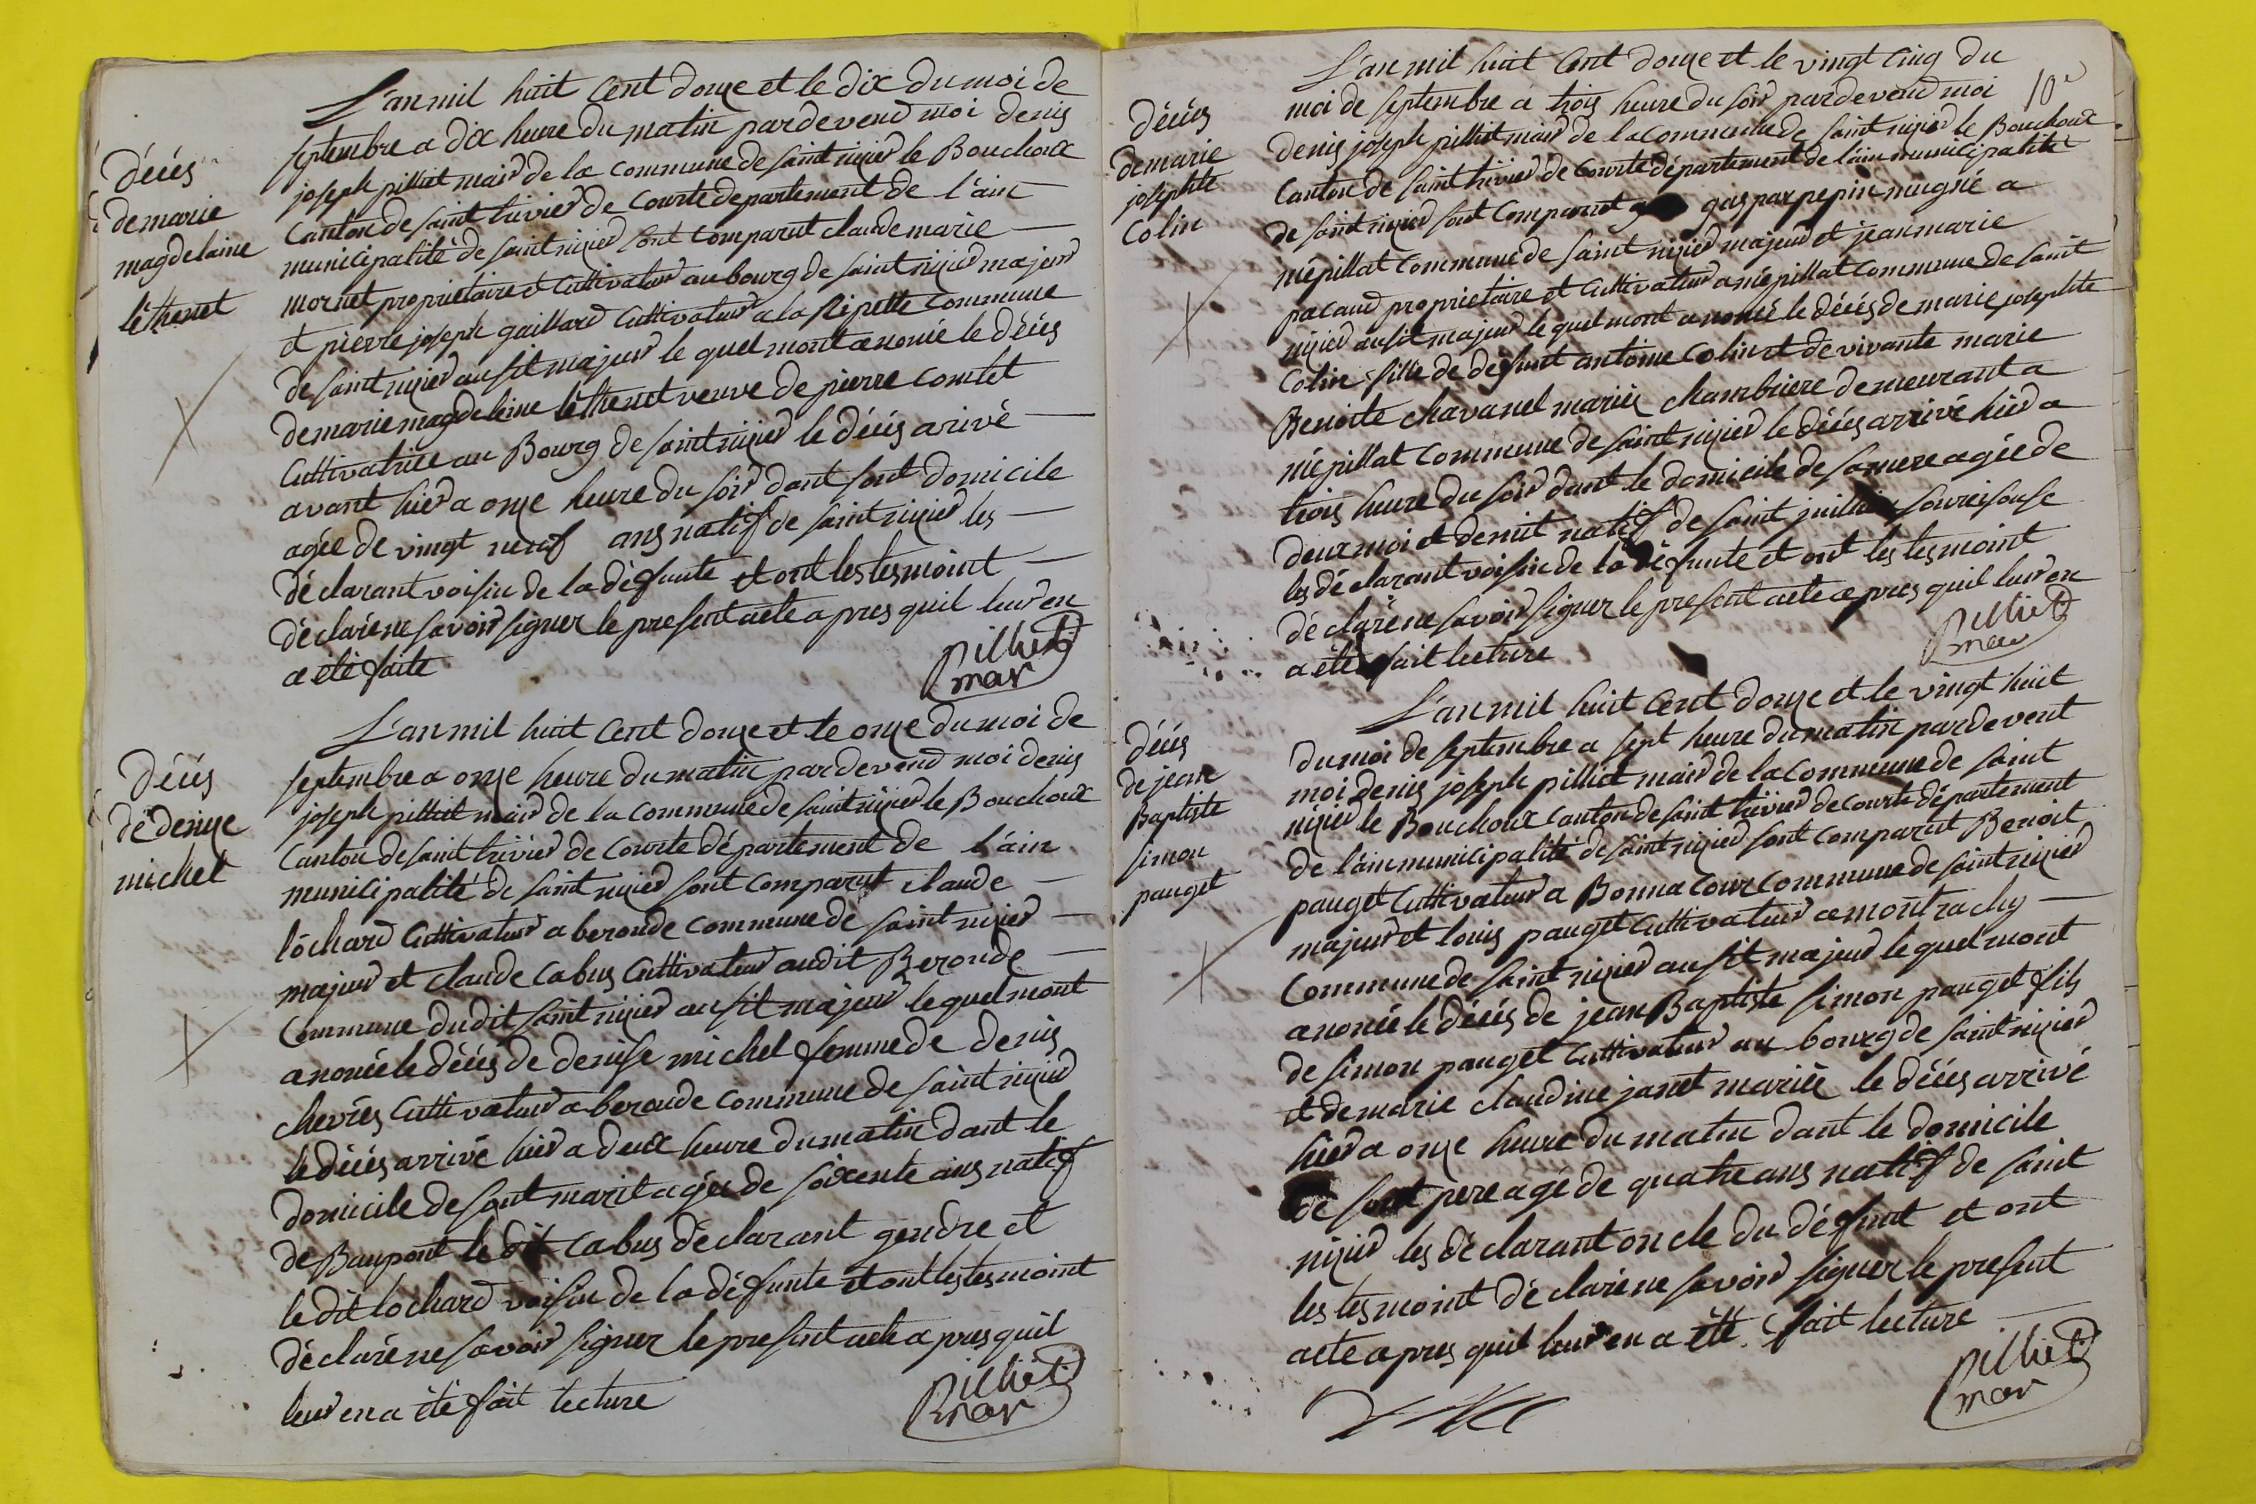 L'an mil huit cent douze et le dix du moi de
septembre a dix heure du matin pardevend moi denis
joseph pilliet mair de la commune de saint nizier le Bouchoux
Canton de saint trivier de courte departement de l'ain
municipalité de saint nizier sont comparut claude marie
mornet proprietaire et cultivateur au bourg de saint nizier majeur
et pierre joseph gaillard cultivateur a la Ripette commune
de saint nizier ausit majeur le quel mont anoncé le décés
de marie magdeleine léthenet veuve de pierre comtet
Cultivatrice au Bourg de saint nizier le décés arivé
avant hier a onze heure du soir dant sont domicile
agée de vingt neuf ans natif de saint nizier les
déclarant voisin de la défunte et ont les tesmoint
déclaré ne savoir signer le present acte apres quil leur en
a été faite
pilliet
mair
Décés
de marie
magdelaine
léthenet
L'an mil huit cent douze et le onze du moi de
septembre a onze heure du matin pardevend moi denis
joseph pilliet mair de la commune de saint nizier le Bouchoux
Canton de saint trivier de courte département de l'ain
municipalité de saint nizier sont comparut claude
lochard cultivateur a beronde commune de saint nizier
majeur et claude cabus cultivateur audit Beronde
Commune dudit saint nizier ausit majeur le quel mont
anoncé le décés de denise michel femme de denis
chevrés cultivateur a beronde commune de saint nizier
le décés arrivé hier a deux heure du matin dant le
domicile de sont marit agée de soixente ans natif
de Baupont le dit cabus déclarant gendre et
le dit lochard voisin de la défunte et ont les tesmoint
déclaré ne savoir signer le present acte apres quil
leur en a été fait lecture
pilliet
mair
Décés
de denyse
michel
10e
L'an mil huit cent douze et le vingt cinq du
moi de septembre a trois heure du soir pardevend moi
denis joseph pilliet mair de la commune de saint nizier le Bouchoux
Canton de saint trivier de courte département de l'ain municipalité
de saint nizier sont comparut gaspar pepin mugnié a
mépillat commune de saint nizier majeur et jean marie
pacaud proprietaire et cultivateur a mépillat commune de saint
nizier ausit majeur le quel mont anoncé le décés de marie josephte
Colin fille de défunt antoine Colin et de vivante marie
Benoite chavanel mariés chambriere demeurant a
mépillat commune de saint nizier le décés arrivé hier a
trois heure du soir dant le domicile de sa mere agée de
deux moi et demit natif de saint jullien sur reisouse
les déclarant voisin de la défunte et ont les tesmoint
déclaré ne savoir signer le present acte apres quil leur en
a été fait lecture
pilliet
mair
Décés
de marie
josephte
Colin
L'an mil huit cent douze et le vingt huit
du moi de septembre a sept heure du matin pardevent
moi denis joseph pilliet mair de la commune de saint
nizier le Bouchoux canton de saint trivier de courte département
de l'ain municipalité de saint nizier sont comparut Benoit
pauget cultivateur a Bonna cour commune de saint nizier
majeur et louis pauget cultivateur a montrachy
Commune de saint nizier ausit majeur le quel mont
anoncé le décés de jean Baptiste simon pauget fils
de simon pauget cultivateur au bourg de saint nizier
et de marie claudine janet mariés le décés arrivé
hier a onze heure du matin dant le domicile
de sont pere agé de quatre ans natif de saint
nizier les déclarant oncle du défunt et ont
les tesmoint déclaré ne savoir signer le present
acte apres quil leur en a été fait lecture
pilliet
mair
Décés
de jean
Baptiste
simon
pauget